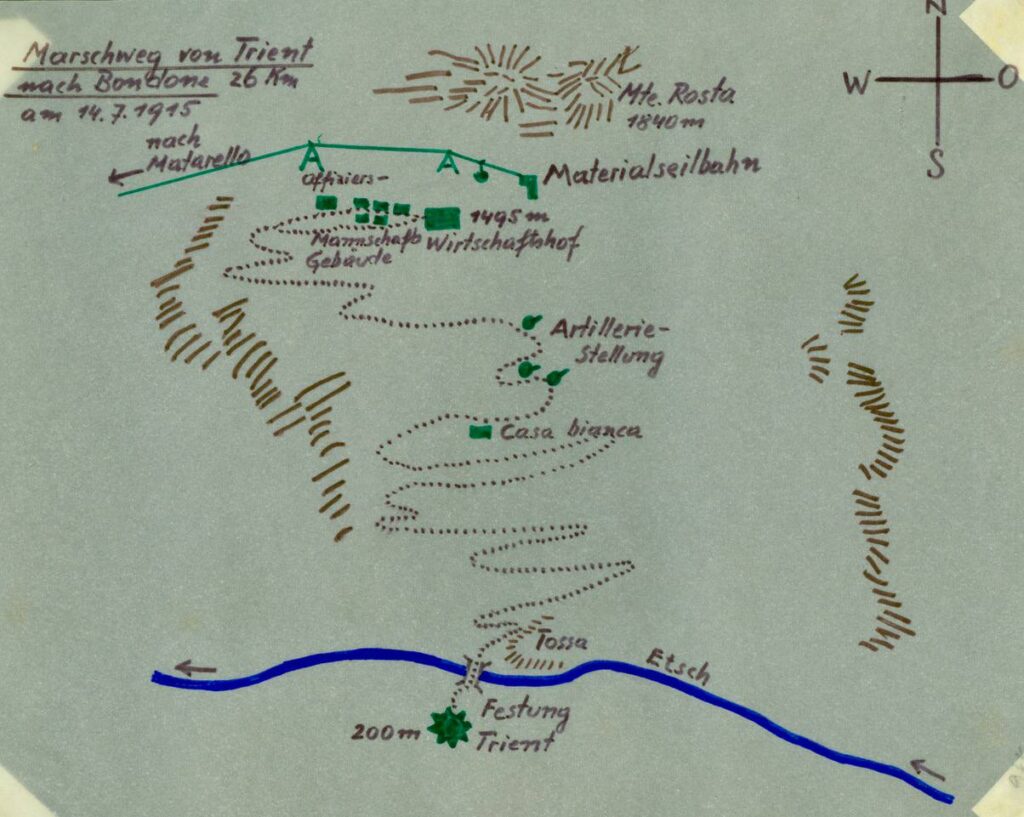 Marschweg von Trient
nach Bondone 26 Km
am 14.7.1915
nach
Matarello
N
W O
S
Mte. Rosta
1840 m
Materialseilbahn
Offiziers-
1495 m
Mannschafts
Gebäude
Wirtschaftshof
Artillerie-
Stellung
Casa bianca
Tossa
Etsch
200 m
Festung
Trient